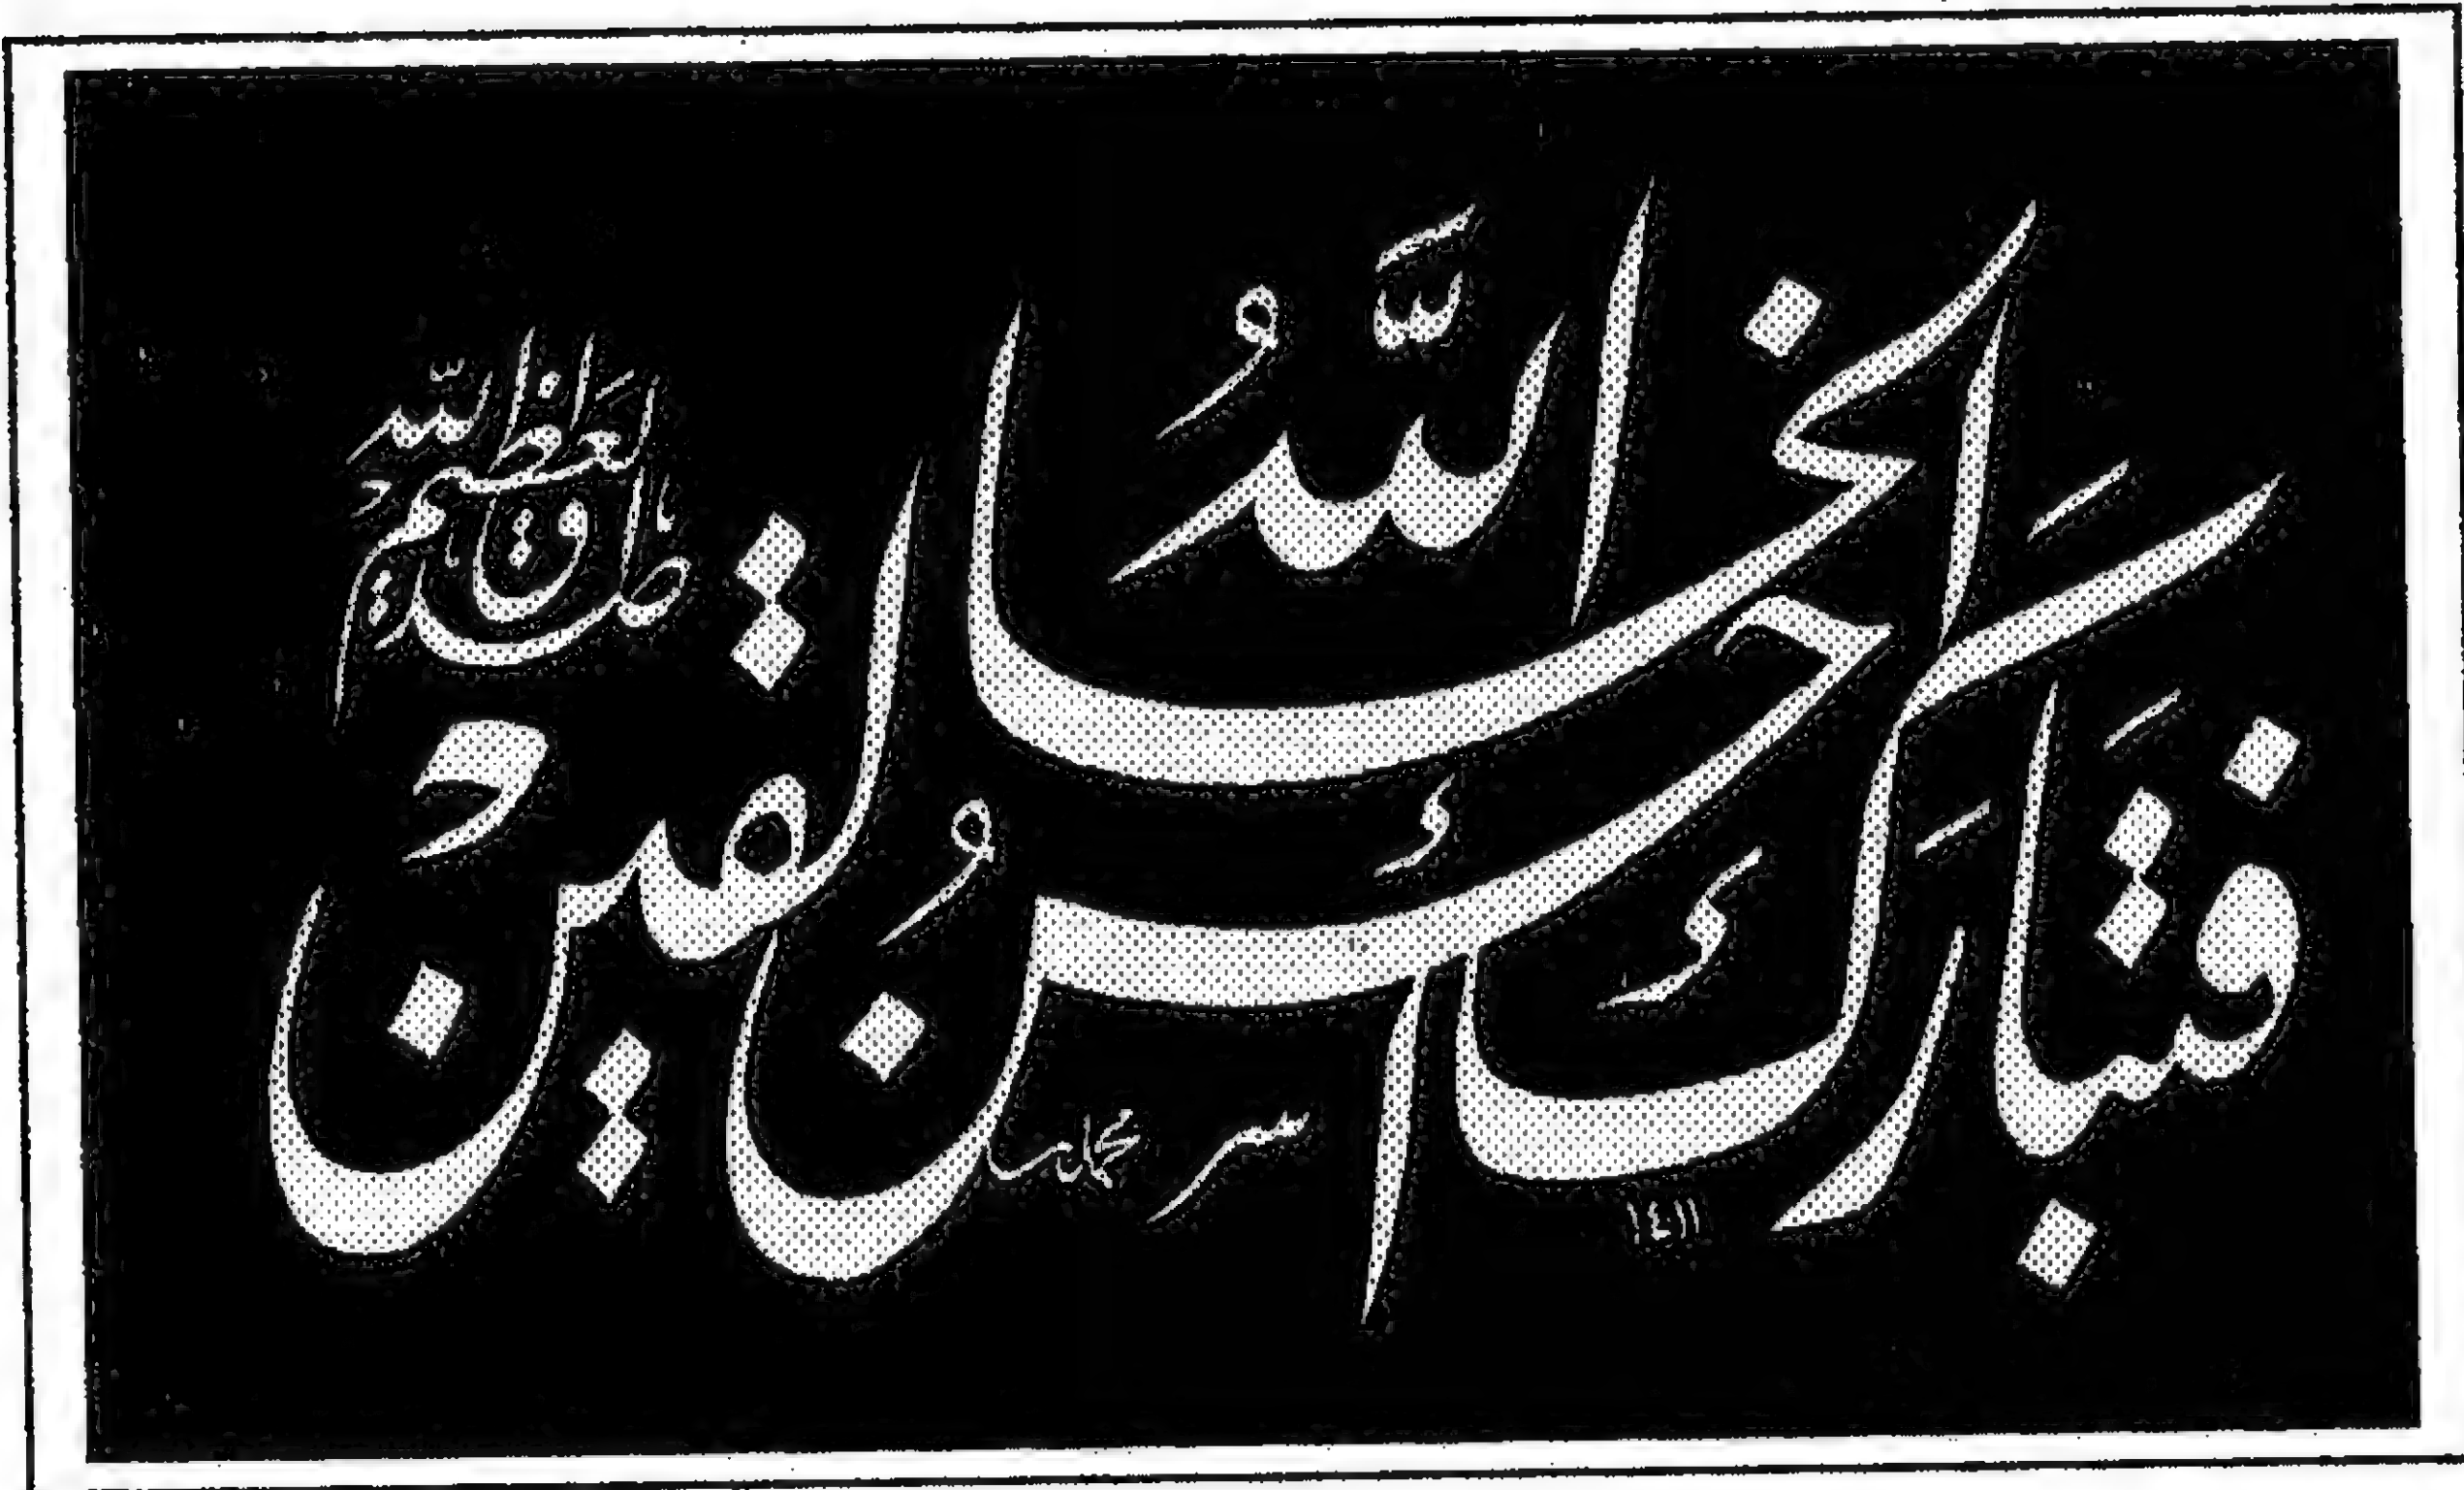 فَتَبَارَكَ اللّٰهُ احسنُ الخالقين
صدق الله العظيم
١٤١١